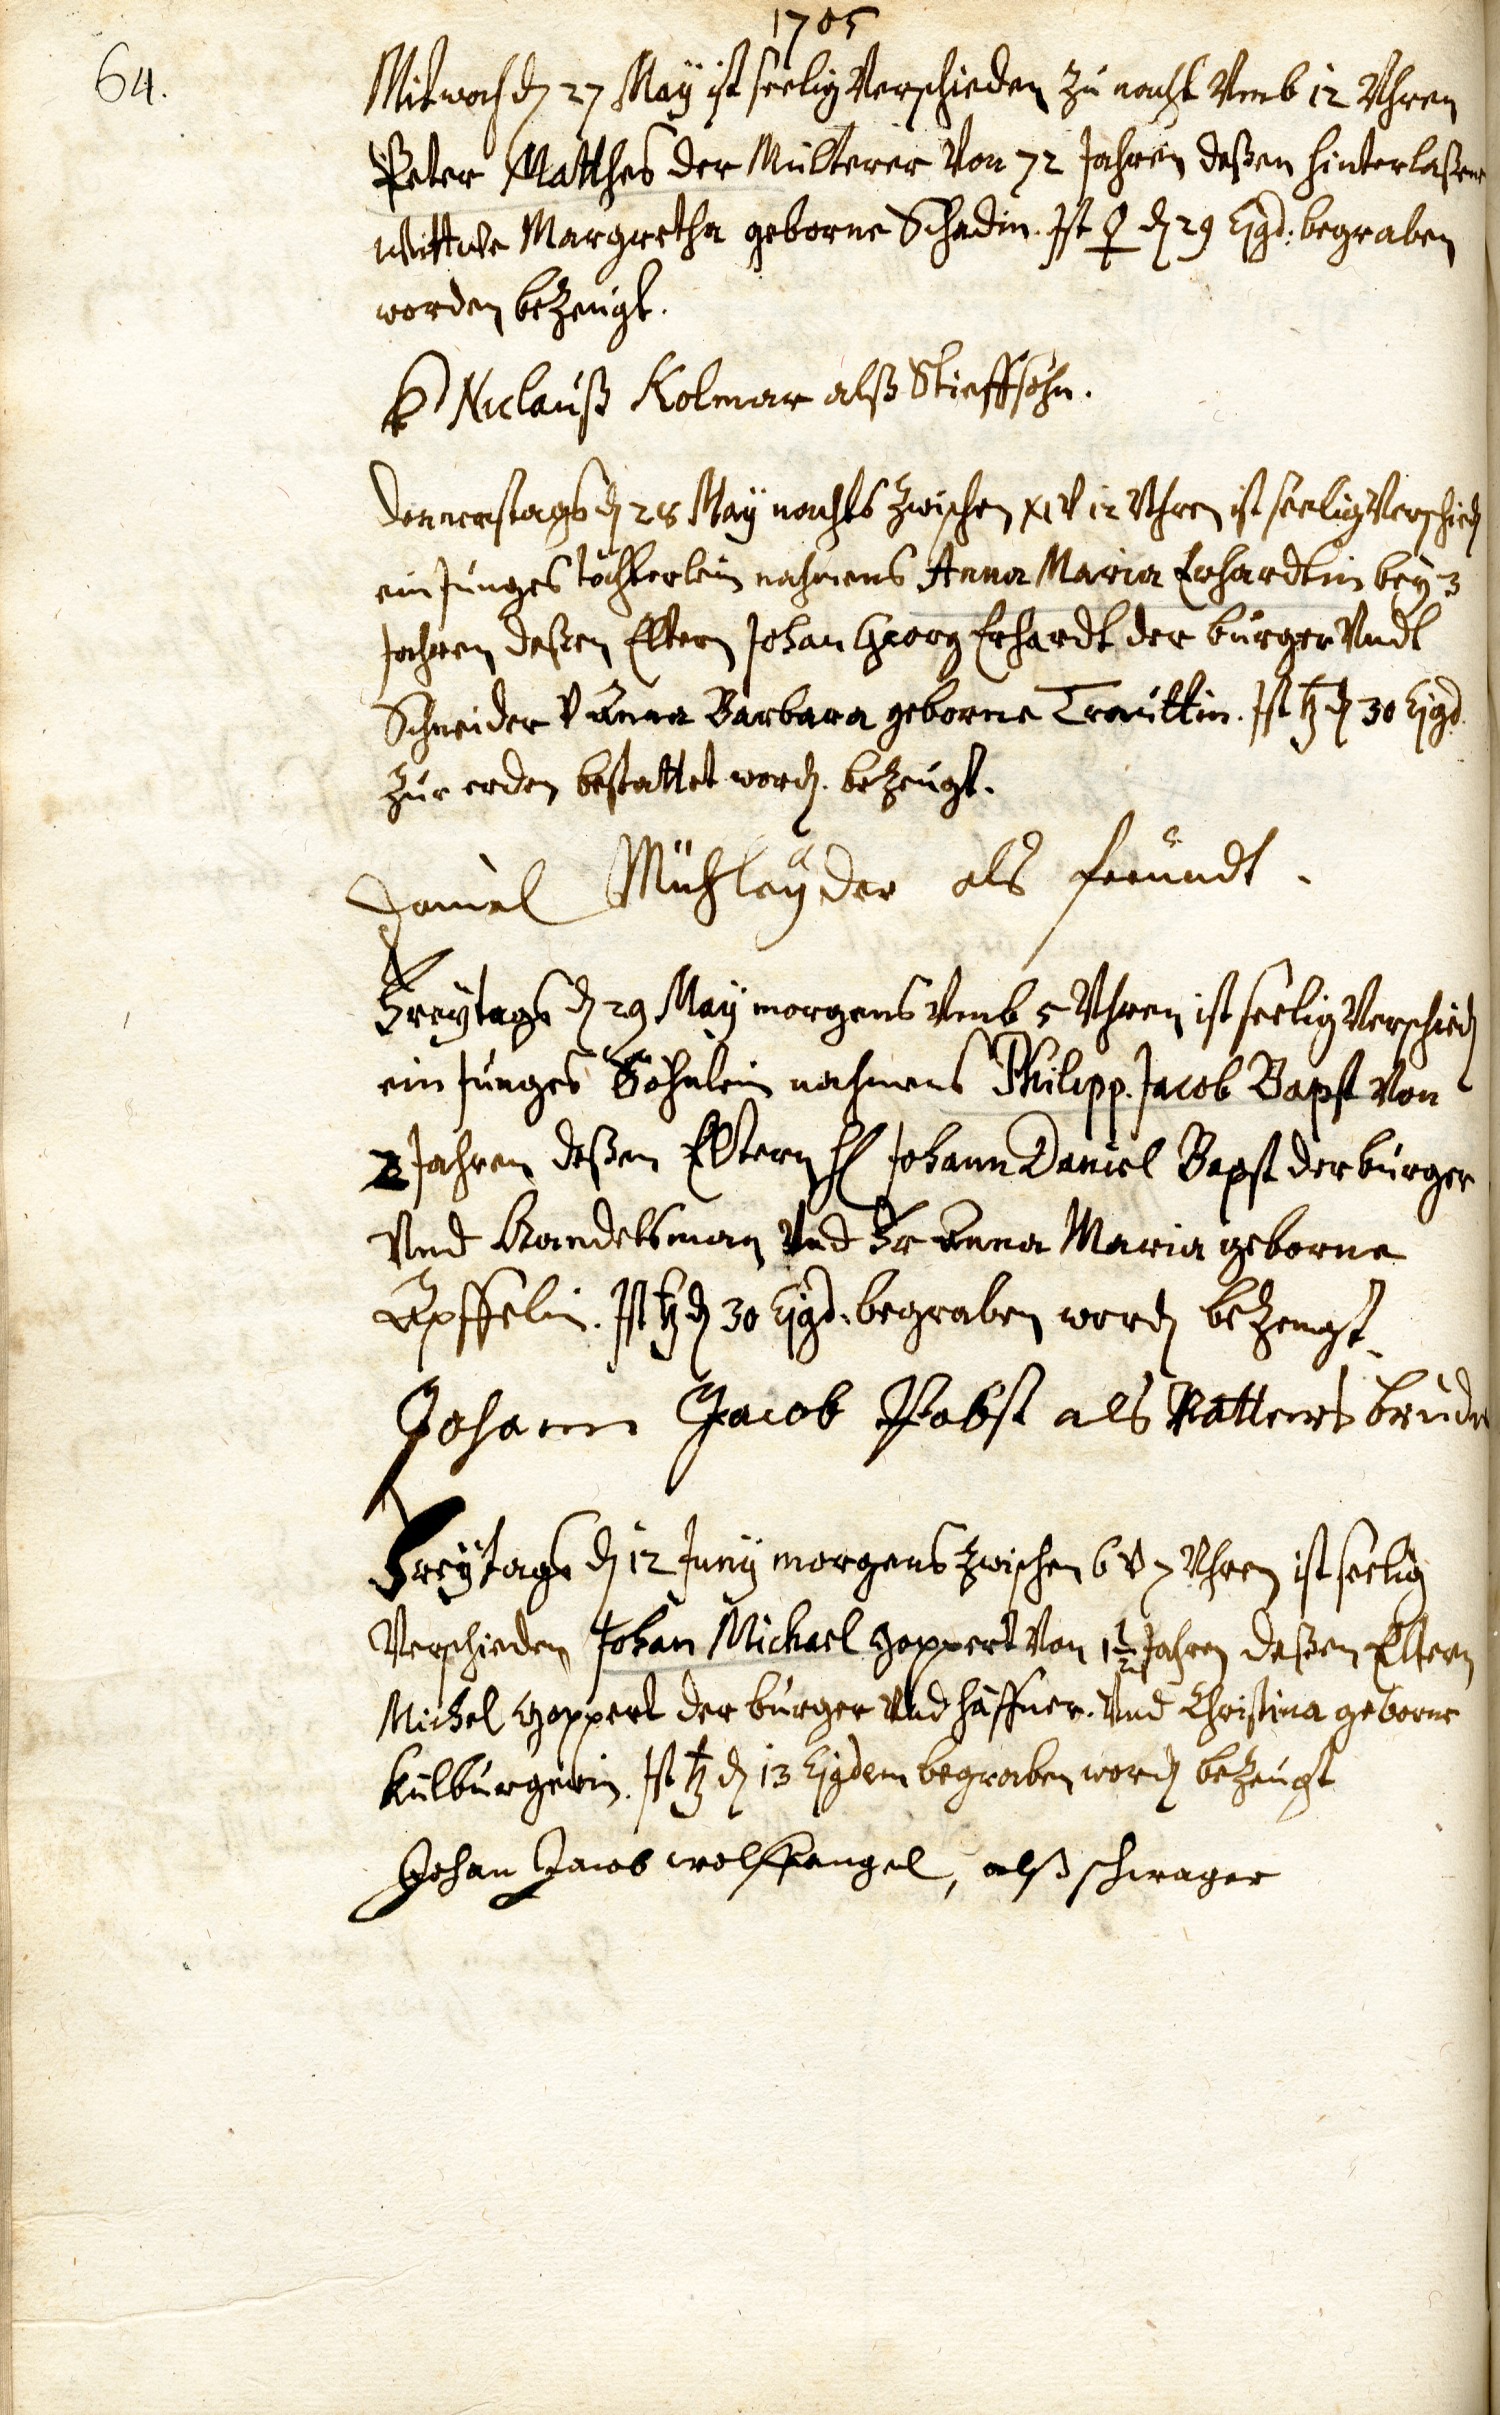 1705
64.
Mitwoch dẽ 27 Maÿ ist seelig Verschieden zu nacht Vmb 12 Vhren
Peter Matthes der Multerer Von 72 Jahren deßen hinterlaßene
Wittwe Margretha geborne Schadin. Ist ♀ dẽ 29 Ejsd: begraben
worden bezeugt.
Niclauß Kolmar alß Stieffsohn.
Donnerstags dẽ 28 Maÿ nachts zwischen XI V 12 Vhren ist seelig Verschiedẽ
ein junges töchterlein nahmens Anna Maria Erhardtin beÿ 3
Jahren deßen Eltern Johan Georg Erhardt der burger Vndt
Schneider V Anna Barbara geborne Trauttin. Ist ♄ dẽ 30 Ejsd.
zur erden bestattet wordẽ. bezeugt.
Daniel Mühleÿder als freundt.
Freÿtags dẽ 29 Maÿ morgens Vmb 5 Vhren ist seelig Verschiedẽ
ein junges Söhnlein nahmens Philipp. Jacob Bapst Von
2 Jahren deßen Eltern H Johann Daniel Bapst der burger
Vnd Handelsman Vnd Fr Anna Maria geborne
Äpffelin. Ist ♄ dẽ 30 Ejsd: begraben wordẽ bezeugt
Johann Jacob Pabst als Vatters bruder
Freÿtags dẽ 12 Junÿ morgens zwischen 6 V 7 Vhren ist seelig
Verschieden Johan Michael Goppert Von 1½ Jahren deßen Eltern
Michel Goppert der burger Vnd häffner. Vnd Christina geborne
Külburgerin. Ist ♄ dẽ 13 Ejsdem begraben wordẽ bezeugt
Johan Jacob wolffangel, alß schwager